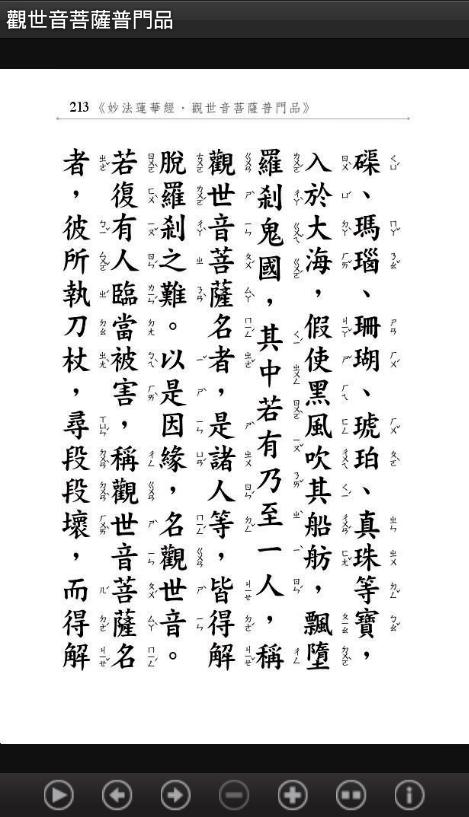 觀世音菩薩普門品
213《妙法蓮華經・觀世音菩薩普門品》
磲、瑪瑙、珊瑚、琥珀、真珠等寶，
入於大海，假使黑風吹其船舫，飄墮
羅剎鬼國，其中若有乃至一人，稱
觀世音菩薩名者，是諸人等，皆得解
脫羅剎之難。以是因緣，名觀世音。
若復有人臨當被害，稱觀世音菩薩名
者，彼所執刀杖，尋段段壞，而得解